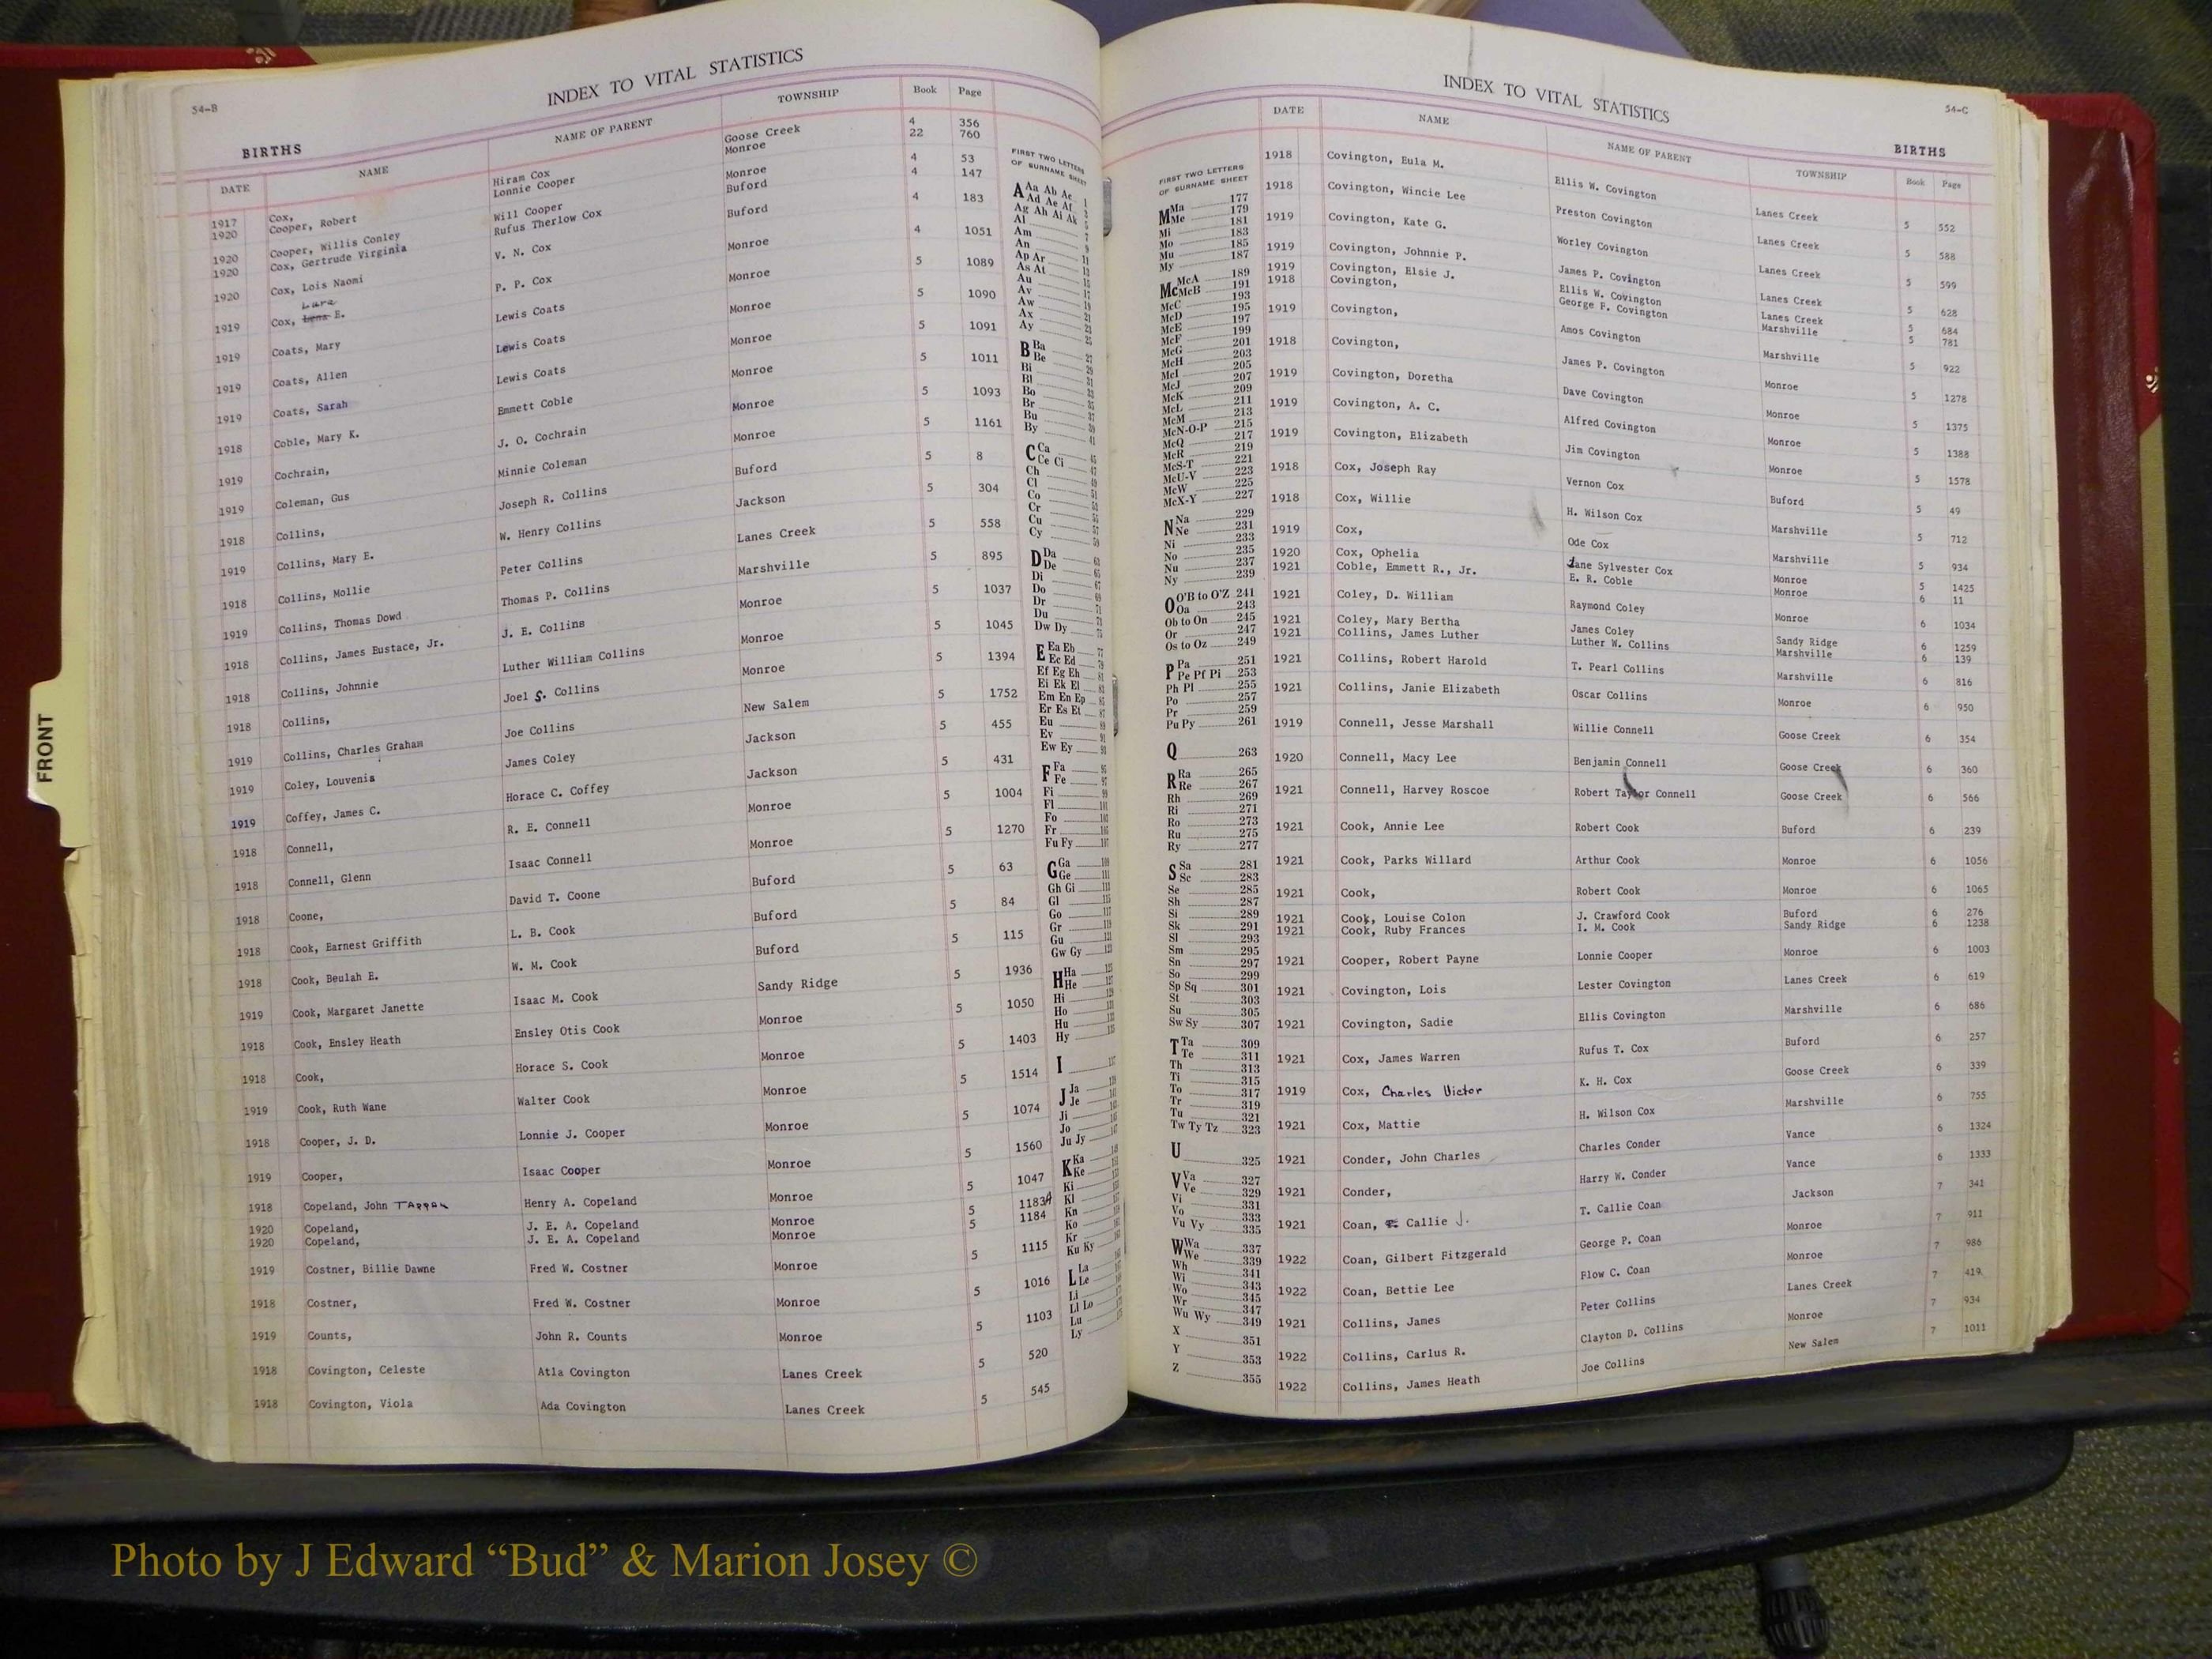 54-B
INDEX TO VITAL STATISTICS
BIRTHS
DATE NAME NAME OF PARENT TOWNSHIP Book Page
1917 Cox, Hiram Cox Goose Creek 4 356
1920 Cooper, Robert Lonnie Cooper Monroe 22 760
1920 Cooper, Willis Conley Will Cooper Monroe 4 53
1920 Cox, Gertrude Virginia Rufus Therlow Cox Buford 4 147
1920 Cox, Lois Naomi V. N. Cox Buford 4 183
Lura
1919 Cox, Lena E. P. P. Cox Monroe 4 1051
1919 Coats, Mary Lewis Coats Monroe 5 1089
1919 Coats, Allen Lewis Coats Monroe 5 1090
1919 Coats, Sarah Lewis Coats Monroe 5 1091
1918 Coble, Mary K. Emmett Coble Monroe 5 1011
1919 Cochrain, J. O. Cochrain Monroe 5 1093
1919 Coleman, Gus Minnie Coleman Monroe 5 1161
1918 Collins, Joseph R. Collins Buford 5 8
1919 Collins, Mary E. W. Henry Collins Jackson 5 304
1918 Collins, Mollie Peter Collins Lanes Creek 5 558
1919 Collins, Thomas Dowd Thomas P. Collins Marshville 5 895
1918 Collins, James Eustace, Jr. J. E. Collins Monroe 5 1037
1918 Collins, Johnnie Luther William Collins Monroe 5 1045
1918 Collins, Joel S. Collins Monroe 5 1394
1919 Collins, Charles Graham Joe Collins New Salem 5 1752
1919 Coley, Louvenia James Coley Jackson 5 455
1919 Coffey, James C. Horace C. Coffey Jackson 5 431
1918 Connell, R. E. Connell Monroe 5 1004
1918 Connell, Glenn Isaac Connell Monroe 5 1270
1918 Coone, David T. Coone Buford 5 63
1918 Cook, Earnest Griffith L. B. Cook Buford 5 84
1918 Cook, Beulah E. W. M. Cook Buford 5 115
1919 Cook, Margaret Janette Isaac M. Cook Sandy Ridge 5 1936
1918 Cook, Ensley Heath Ensley Otis Cook Monroe 5 1050
1918 Cook, Horace S. Cook Monroe 5 1403
1919 Cook, Ruth Wane Walter Cook Monroe 5 1514
1918 Cooper, J. D. Lonnie J. Cooper Monroe 5 1074
1919 Cooper, Isaac Cooper Monroe 5 1560
1918 Copeland, John Henry A. Copeland Monroe 5 1047
1920 Copeland, J. E. A. Copeland Monroe 5 1183A
1920 Copeland, J. E. A. Copeland Monroe 5 1184
1919 Costner, Billie Dawne Fred W. Costner Monroe 5 1115
1918 Costner, Fred W. Costner Monroe 5 1016
1919 Counts, John R. Counts Monroe 5 1103
1918 Covington, Celeste Atla Covington Lanes Creek 5 520
1918 Covington, Viola Ada Covington Lanes Creek 5 545
FIRST TWO LETTERS
OF SURNAME SHEET
A Aa Ab Ac
Ad Ae Af
Ag Ah Ai Ak
Al
Am
An
Ap Ar
As At
Au
Av
Aw
Ax
Ay
B Ba
Be
Bi
Bl
Bo
Br
Bu
By
C Ca
Ce Ci
Ch
Cl
Co
Cr
Cu
Cy
D Da
De
Di
Do
Dr
Du
Dw Dy
E Ea Eb
Ec Ed
Ef Eg Eh
Ei Ek El
Em En Ep
Er Es Et
Eu
Ev
Ew Ey
F Fa
Fe
Fi
Fl
Fo
Fr
Fu Fy
G Ga
Ge
Gh Gi
Gl
Go
Gr
Gu
Gw Gy
H Ha
He
Hi
Ho
Hu
Hy
I
J Ja
Je
Ji
Jo
Ju Jy
K Ka
Ke
Ki
Kl
Kn
Ko
Kr
Ku Ky
L La
Le
Li
Ll Lo
Lu
Ly
FRONT
INDEX TO VITAL STATISTICS
54-C
BIRTHS
FIRST TWO LETTERS
OF SURNAME SHEET
M Ma 177
Me 179
Mi 181
Mo 183
Mu 185
My 187
Mc McA 189
McB 191
McC 193
McD 195
McE 197
McF 199
McG 201
McH 203
McI 205
McJ 207
McK 209
McL 211
McM 213
McN-O-P 215
McQ 217
McR 219
McS-T 221
McU-V 223
McW 225
McX-Y 227
N Na 229
Ne 231
Ni 233
No 235
Nu 237
Ny 239
O O'B to O'Z 241
Oa 243
Ob to On 245
Or 247
Os to Oz 249
P Pa 251
Pe Pf Pi 253
Ph Pl 255
Po 257
Pr 259
Pu Py 261
Q 263
R Ra 265
Re 267
Rh 269
Ri 271
Ro 273
Ru 275
Ry 277
S Sa 281
Sc 283
Se 285
Sh 287
Si 289
Sk 291
Sl 293
Sm 295
Sn 297
So 299
Sp Sq 301
St 303
Su 305
Sw Sy 307
T Ta 309
Te 311
Th 313
Ti 315
To 317
Tr 319
Tu 321
Tw Ty Tz 323
U 325
V Va 327
Ve 329
Vi 331
Vo 333
Vu Vy 335
W Wa 337
We 339
Wh 341
Wi 343
Wo 345
Wr 347
Wu Wy 349
X 351
Y 353
Z 355
DATE NAME NAME OF PARENT TOWNSHIP Book Page
1918 Covington, Eula M. Ellis W. Covington Lanes Creek 5 552
1918 Covington, Wincie Lee Preston Covington Lanes Creek 5 588
1919 Covington, Kate G. Worley Covington Lanes Creek 5 599
1919 Covington, Johnnie P. James P. Covington Lanes Creek 5 628
1919 Covington, Elsie J. Ellis W. Covington Lanes Creek 5 684
1918 Covington, George F. Covington Marshville 5 781
1919 Covington, Amos Covington Marshville 5 922
1918 Covington, James P. Covington Monroe 5 1278
1919 Covington, Doretha Dave Covington Monroe 5 1375
1919 Covington, A. C. Alfred Covington Monroe 5 1388
1919 Covington, Elizabeth Jim Covington Monroe 5 1578
1918 Cox, Joseph Ray Vernon Cox Buford 5 49
1918 Cox, Willie H. Wilson Cox Marshville 5 712
1919 Cox, Ode Cox Marshville 5 934
1920 Cox, Ophelia Jane Sylvester Cox Monroe 5 1425
1921 Coble, Emmett R., Jr. E. R. Coble Monroe 6 11
1921 Coley, D. William Raymond Coley Monroe 6 1034
1921 Coley, Mary Bertha James Coley Sandy Ridge 6 1259
1921 Collins, James Luther Luther W. Collins Marshville 6 139
1921 Collins, Robert Harold T. Pearl Collins Marshville 6 816
1921 Collins, Janie Elizabeth Oscar Collins Monroe 6 950
1919 Connell, Jesse Marshall Willie Connell Goose Creek 6 354
1920 Connell, Macy Lee Benjamin Connell Goose Creek 6 360
1921 Connell, Harvey Roscoe Robert Taylor Connell Goose Creek 6 566
1921 Cook, Annie Lee Robert Cook Buford 6 239
1921 Cook, Parks Willard Arthur Cook Monroe 6 1056
1921 Cook, Robert Cook Monroe 6 1065
1921 Cook, Louise Colon J. Crawford Cook Buford 6 276
1921 Cook, Ruby Frances I. M. Cook Sandy Ridge 6 1238
1921 Cooper, Robert Payne Lonnie Cooper Monroe 6 1003
1921 Covington, Lois Lester Covington Lanes Creek 6 619
1921 Covington, Sadie Ellis Covington Marshville 6 686
1921 Cox, James Warren Rufus T. Cox Buford 6 257
1919 Cox, Charles Victor K. H. Cox Goose Creek 6 339
1921 Cox, Mattie H. Wilson Cox Marshville 6 755
1921 Conder, John Charles Charles Conder Vance 6 1324
1921 Conder, Harry W. Conder Vance 6 1333
1921 Coan, Callie J. T. Callie Coan Jackson 7 341
1922 Coan, Gilbert Fitzgerald George P. Coan Monroe 7 911
1922 Coan, Bettie Lee Flow C. Coan Monroe 7 986
1921 Collins, James Peter Collins Lanes Creek 7 419
1922 Collins, Carlus R. Clayton D. Collins Monroe 7 934
1922 Collins, James Heath Joe Collins New Salem 7 1011
Photo by J Edward “Bud” & Marion Josey ©